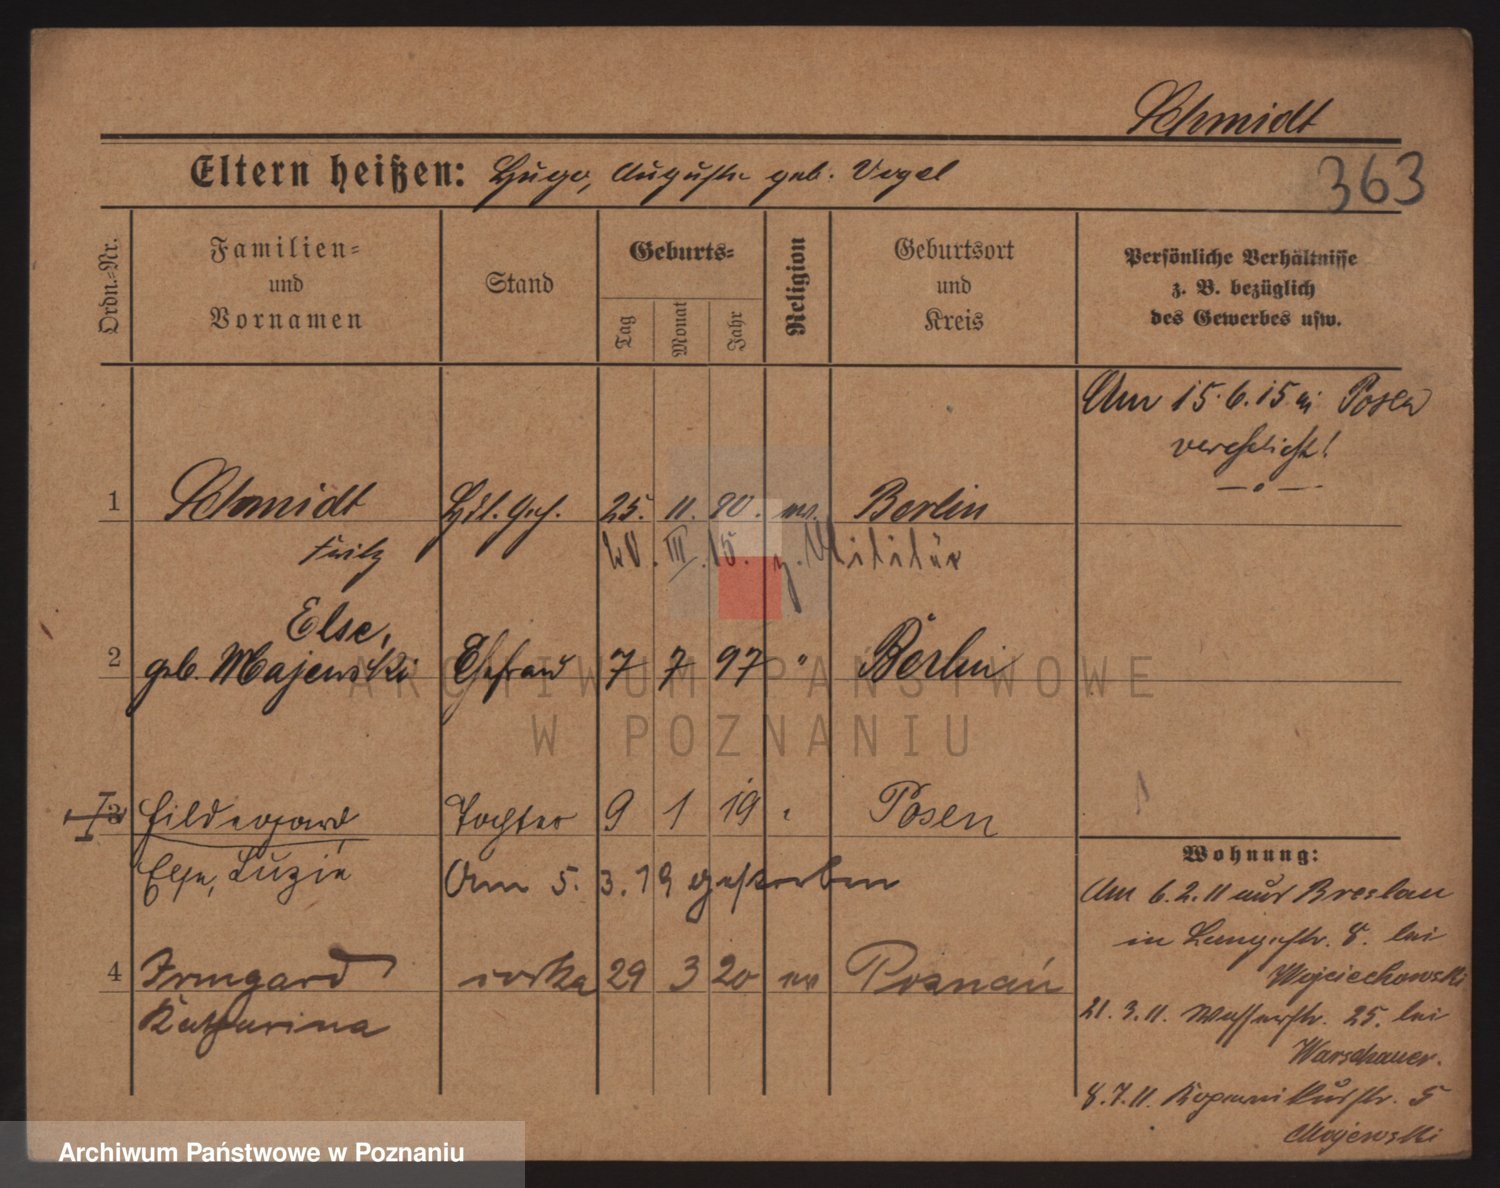 Schmidt
Eltern heißen: Hugo, Auguste geb. Vogel
363
Ordn.-Nr.
Familien-
und
Vornamen
Stand
Geburts-
Tag
Monat
Jahr
Religion
Geburtsort
und
Kreis
Persönliche Verhältnisse
z. B. bezüglich
des Gewerbes usw.
Am 15.6.15 in Posen
verehelicht!
1 Schmidt Hdl. Geh. 25. 11. 90. ev. Berlin
Fritz
III. 15. z. Militär
Else,
2 geb. Majewski Ehefrau 7 7 97 " Berlin
3 Hildegard Tochter 9 1 19 " Posen
Else, Luzie Am 5. 3. 19 gestorben
4 Irmgard córka 29 3 20 ew Poznań
Katharina
Wohnung:
Am 6.2.11 aus Breslau
in Langestr. 8. bei
Wojciechowski
21. 3. 11. Wasserstr. 25. bei
Warschauer.
8. 7. 11. Kopernikusstr. 5
Majewski
ARCHIWUM PAŃSTWOWE
W POZNANIU
Archiwum Państwowe w Poznaniu